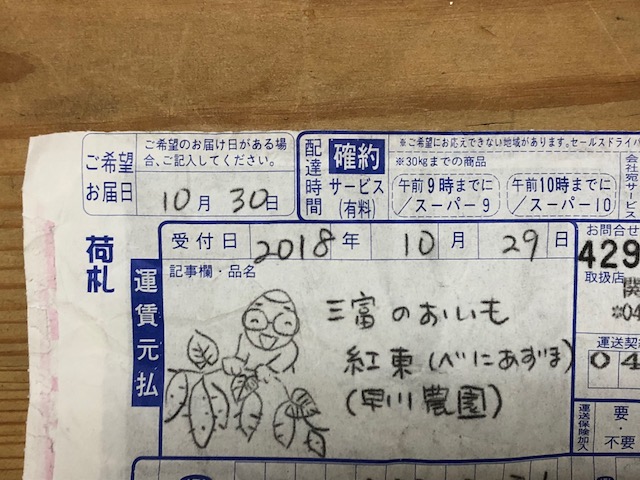 ご希望
お届日
ご希望のお届け日がある場
合、ご記入してください。
10月30日
配達時間
確約
サービス
(有料)
※ご希望にお応えできない地域があります。セールスドライバ
※30kgまでの商品
午前9時までに
/スーパー9
午前10時までに
/スーパー10
会社宛サービス
荷札
受付日 2018年 10月 29日
お問合せ
429
取扱店
関
※04
運賃元払
記事欄・品名
三富のおいも
紅東(べにあずま)
(早川農園)
運送契約
04
運送保険加入
要・不要